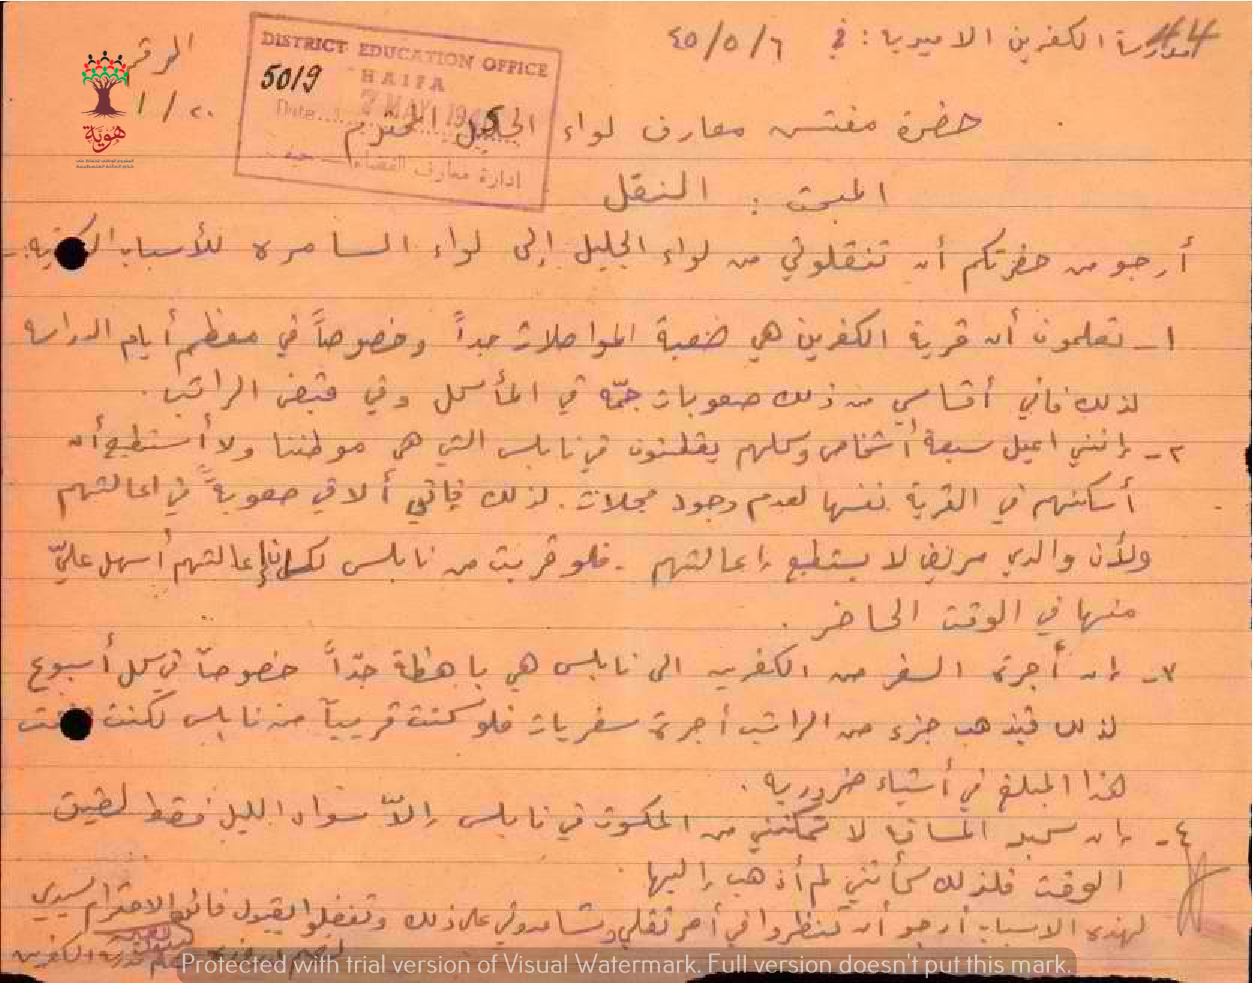 مدرسة الكفرين الاميرية : في ٦ / ٥ / ٤٥
الرقم
٢٠ / ١
DISTRICT EDUCATION OFFICE
HAIFA
5019
7 MAY 1945
Date
ادارة معارف القضاء حيفا
هوية
حضرة مفتش معارف لواء الجليل المحترم
المبحث : النقل
أرجو من حضرتكم أن تنقلوني من لواء الجليل إلى لواء السامره للأسباب الآتية :-
١- تعلمون أن قرية الكفرين هي صعبة المواصلات جداً وخصوصاً في معظم أيام الدراسه
لذلك فاني أقاسي من ذلك صعوبات جمّه في المأكل وفي قبض الراتب .
٢- إنني اعيل سبعة أشخاص وكلهم يقطنون في نابلس التي هي موطننا ولا أستطيع أن
أسكنهم في القرية نفسها لعدم وجود محلات . لذلك فإني ألاقي صعوبةً في اعالتهم
ولأن والدي مريض لا يستطيع إعالتهم . فلو قربت من نابلس لكان إعالتهم أسهل عليّ
منها في الوقت الحاضر .
٣- إن أجرة السفر من الكفرين الى نابلس هي باهظة جدّاً خصوصاً في كل أسبوع
لذلك فيذهب جزء من الراتب أجرة سفريات فلو كنت قريباً من نابلس لكنت
هذا المبلغ في أشياء ضروريه .
٤- إن بعد المسافة لا تمكنني من المكوث في نابلس إلاّ سواد الليل فقط لضيق
الوقت فلذلك كأنني لم أذهب إليها .
لهذه الاسباب أرجو أن تنظروا في أمر نقلي وتساعدوني على ذلك وتفضلوا بقبول فائق الاحترام سيدي
معلم مدرسة الكفرين
Protected with trial version of Visual Watermark. Full version doesn't put this mark.